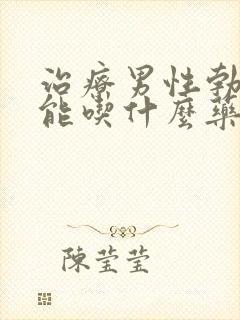 治療男性勃
能喫什麼藥
陳瑩瑩